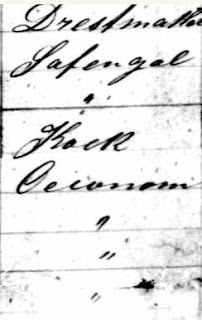 Drestmaker
Safengal
"
Kock
Oeconom
"
"
"